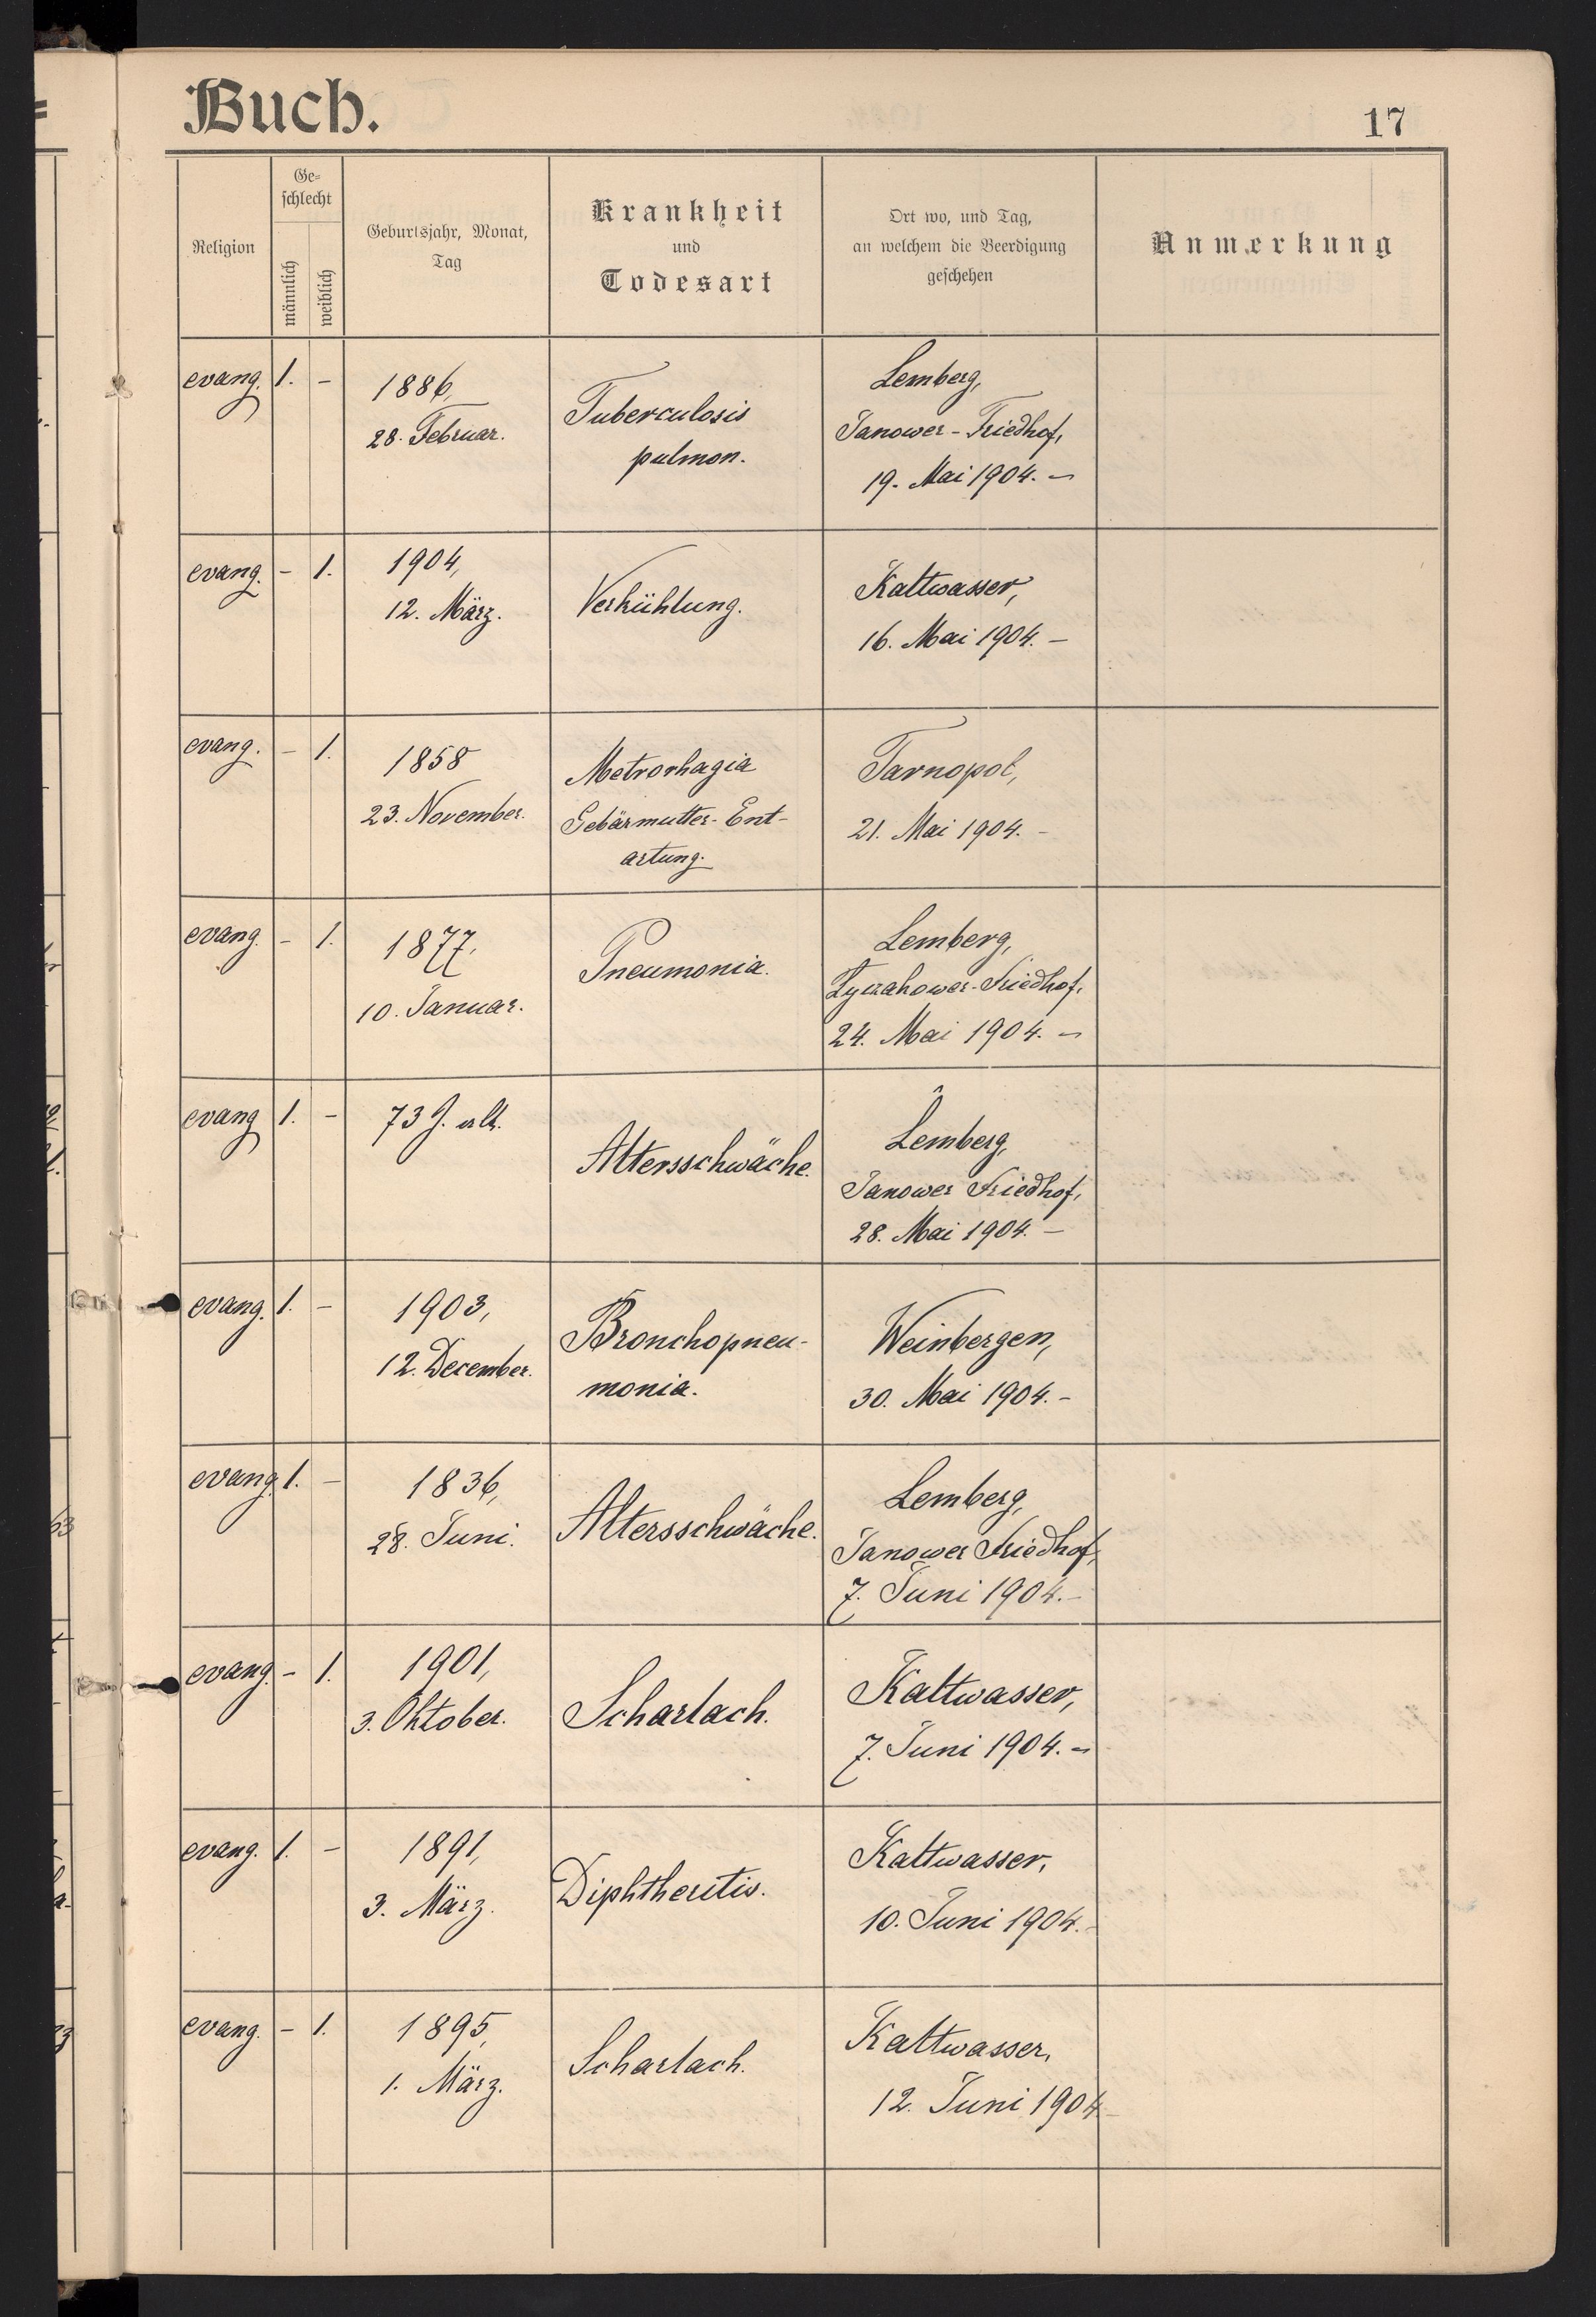 Buch.
17
Religion
Ge-
schlecht
männlich
weiblich
Geburtsjahr, Monat,
Tag
Krankheit
und
Todesart
Ort wo, und Tag,
an welchem die Beerdigung
geschehen
Anmerkung
evang. 1. – 1886,
28. Februar.
Tuberculosis
pulmon.
Lemberg,
Janower-Friedhof,
19. Mai 1904. –
evang. – 1. 1904,
12. März.
Verkühlung.
Kaltwasser,
16. Mai 1904. –
evang. – 1. 1858
23. November.
Metrorhagia
Gebärmutter-Ent-
artung.
Tarnopol,
21. Mai 1904. –
evang. – 1. 1877,
10. Januar.
Pneumonia.
Lemberg,
Lyczakower-Friedhof,
24. Mai 1904. –
evang 1. – 73 J. alt.
Altersschwäche.
Lemberg,
Janower Friedhof,
28. Mai 1904. –
evang. 1. – 1903,
12. December.
Bronchopneu-
monia.
Weinbergen,
30. Mai 1904. –
evang. 1. – 1836,
28. Juni.
Altersschwäche.
Lemberg,
Janower Friedhof,
7. Juni 1904. –
evang. – 1. 1901,
3. Oktober.
Scharlach.
Kaltwasser,
7. Juni 1904. –
evang. 1. – 1891,
3. März.
Diphtheritis.
Kaltwasser,
10. Juni 1904. –
evang. – 1. 1895,
1. März.
Scharlach.
Kaltwasser,
12. Juni 1904 –